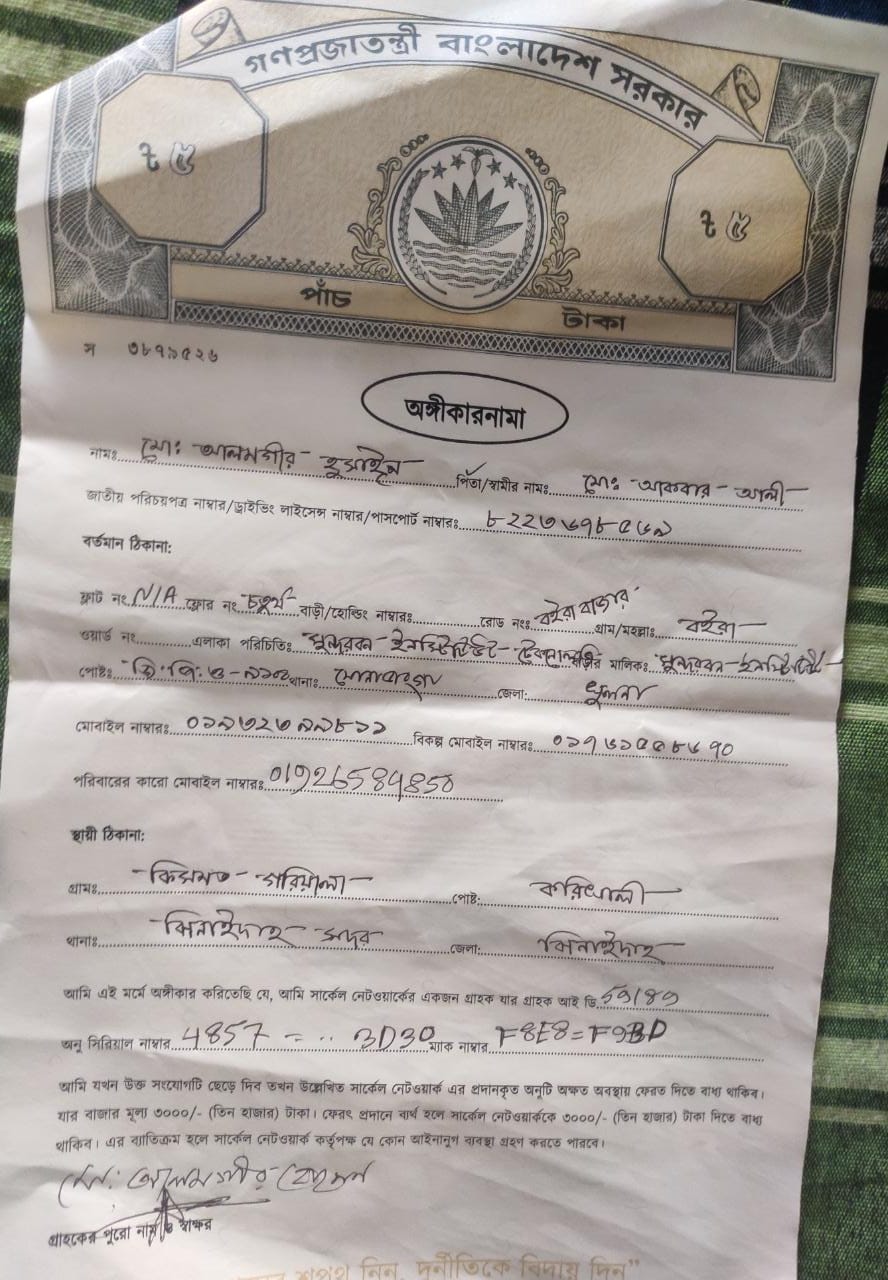 গণপ্রজাতন্ত্রী বাংলাদেশ সরকার
৳ ৫ ৳ ৫
পাঁচ টাকা
স ৩৮৭৯৫২৬
অঙ্গীকারনামা
নামঃ মোঃ আলমগীর হুসাইন পিতা/স্বামীর নামঃ মোঃ আকবার আলী
জাতীয় পরিচয়পত্র নাম্বার/ড্রাইভিং লাইসেন্স নাম্বার/পাসপোর্ট নাম্বারঃ
বর্তমান ঠিকানা:
ফ্লাট নং N/A ফ্লোর নং চতুর্থ বাড়ী/হোল্ডিং নাম্বারঃ রোড নংঃ বইরা বাজার গ্রাম/মহল্লাঃ বইরা
ওয়ার্ড নং এলাকা পরিচিতিঃ সুন্দরবন ইনস্টিটিউট টেকনোলজি মালিকঃ সুন্দরবন ইনস্টিটিউট
পোষ্টঃ থানাঃ সোনাডাঙ্গা জেলা: খুলনা
মোবাইল নাম্বারঃ বিকল্প মোবাইল নাম্বারঃ
পরিবারের কারো মোবাইল নাম্বারঃ 01926584850
স্থায়ী ঠিকানা:
গ্রামঃ কিসমত গরিয়ালা পোষ্ট:
থানাঃ ঝিনাইদাহ সদর জেলা: ঝিনাইদাহ
আমি এই মর্মে অঙ্গীকার করিতেছি যে, আমি সার্কেল নেটওয়ার্কের একজন গ্রাহক যার গ্রাহক আই ডি
অনু সিরিয়াল নাম্বার 4857 3D30 ম্যাক নাম্বার F8E8=F9BD
আমি যখন উক্ত সংযোগটি ছেড়ে দিব তখন উল্লেখিত সার্কেল নেটওয়ার্ক এর প্রদানকৃত অনুটি অক্ষত অবস্থায় ফেরত দিতে বাধ্য থাকিব।
যার বাজার মূল্য ৩০০০/- (তিন হাজার) টাকা। ফেরৎ প্রদানে ব্যর্থ হলে সার্কেল নেটওয়ার্ককে ৩০০০/- (তিন হাজার) টাকা দিতে বাধ্য
থাকিব। এর ব্যতিক্রম হলে সার্কেল নেটওয়ার্ক কর্তৃপক্ষ যে কোন আইনানুগ ব্যবস্থা গ্রহণ করতে পারবে।
মো: আলমগীর হোসেন
গ্রাহকের পুরো নাম ও স্বাক্ষর
শপথ নিন, দুর্নীতিকে বিদায় দিন"